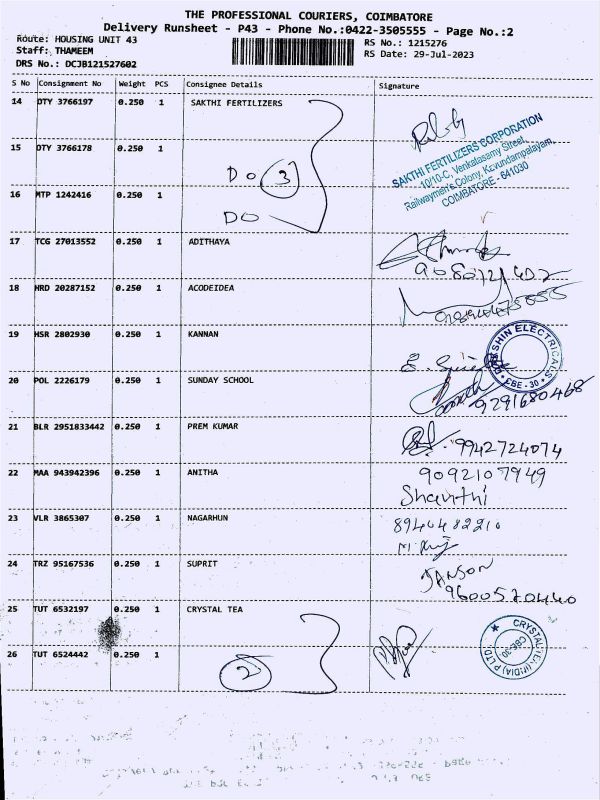 THE PROFESSIONAL COURIERS, COIMBATORE
Delivery Runsheet - P43 - Phone No.:0422-3505555 - Page No.:2
Route: HOUSING UNIT 43
RS No.: 1215276
Staff: THAMEEM
RS Date: 29-Jul-2023
DRS No.: DCJB121527602
S No Consignment No Weight PCS Consignee Details Signature
14 DTY 3766197 0.250 1 SAKTHI FERTILIZERS
15 DTY 3766178 0.250 1
SAKTHI FERTILIZERS CORPORATION
10/10-C, Venkatasamy Street,
Railwaymen's Colony, Kavundampalayam,
COIMBATORE - 641030
DO 3
16 MTP 1242416 0.250 1
DO
17 TCG 27013552 0.250 1 ADITHAYA
18 HRD 20287152 0.250 1 ACODEIDEA
19 HSR 2802930 0.250 1 KANNAN
ELECTRICALS
CBE - 30
20 POL 2226179 0.250 1 SUNDAY SCHOOL
9291680468
21 BLR 2951833442 0.250 1 PREM KUMAR
9942724074
22 MAA 943942396 0.250 1 ANITHA
9092107949
Shanthi
23 VLR 3865307 0.250 1 NAGARHUN
24 TRZ 95167536 0.250 1 SUPRIT
JANSON
9600520440
25 TUT 6532197 0.250 1 CRYSTAL TEA
CRYSTAL TEA (INDIA) P LTD
CBE-30
26 TUT 6524442 0.250 1
2